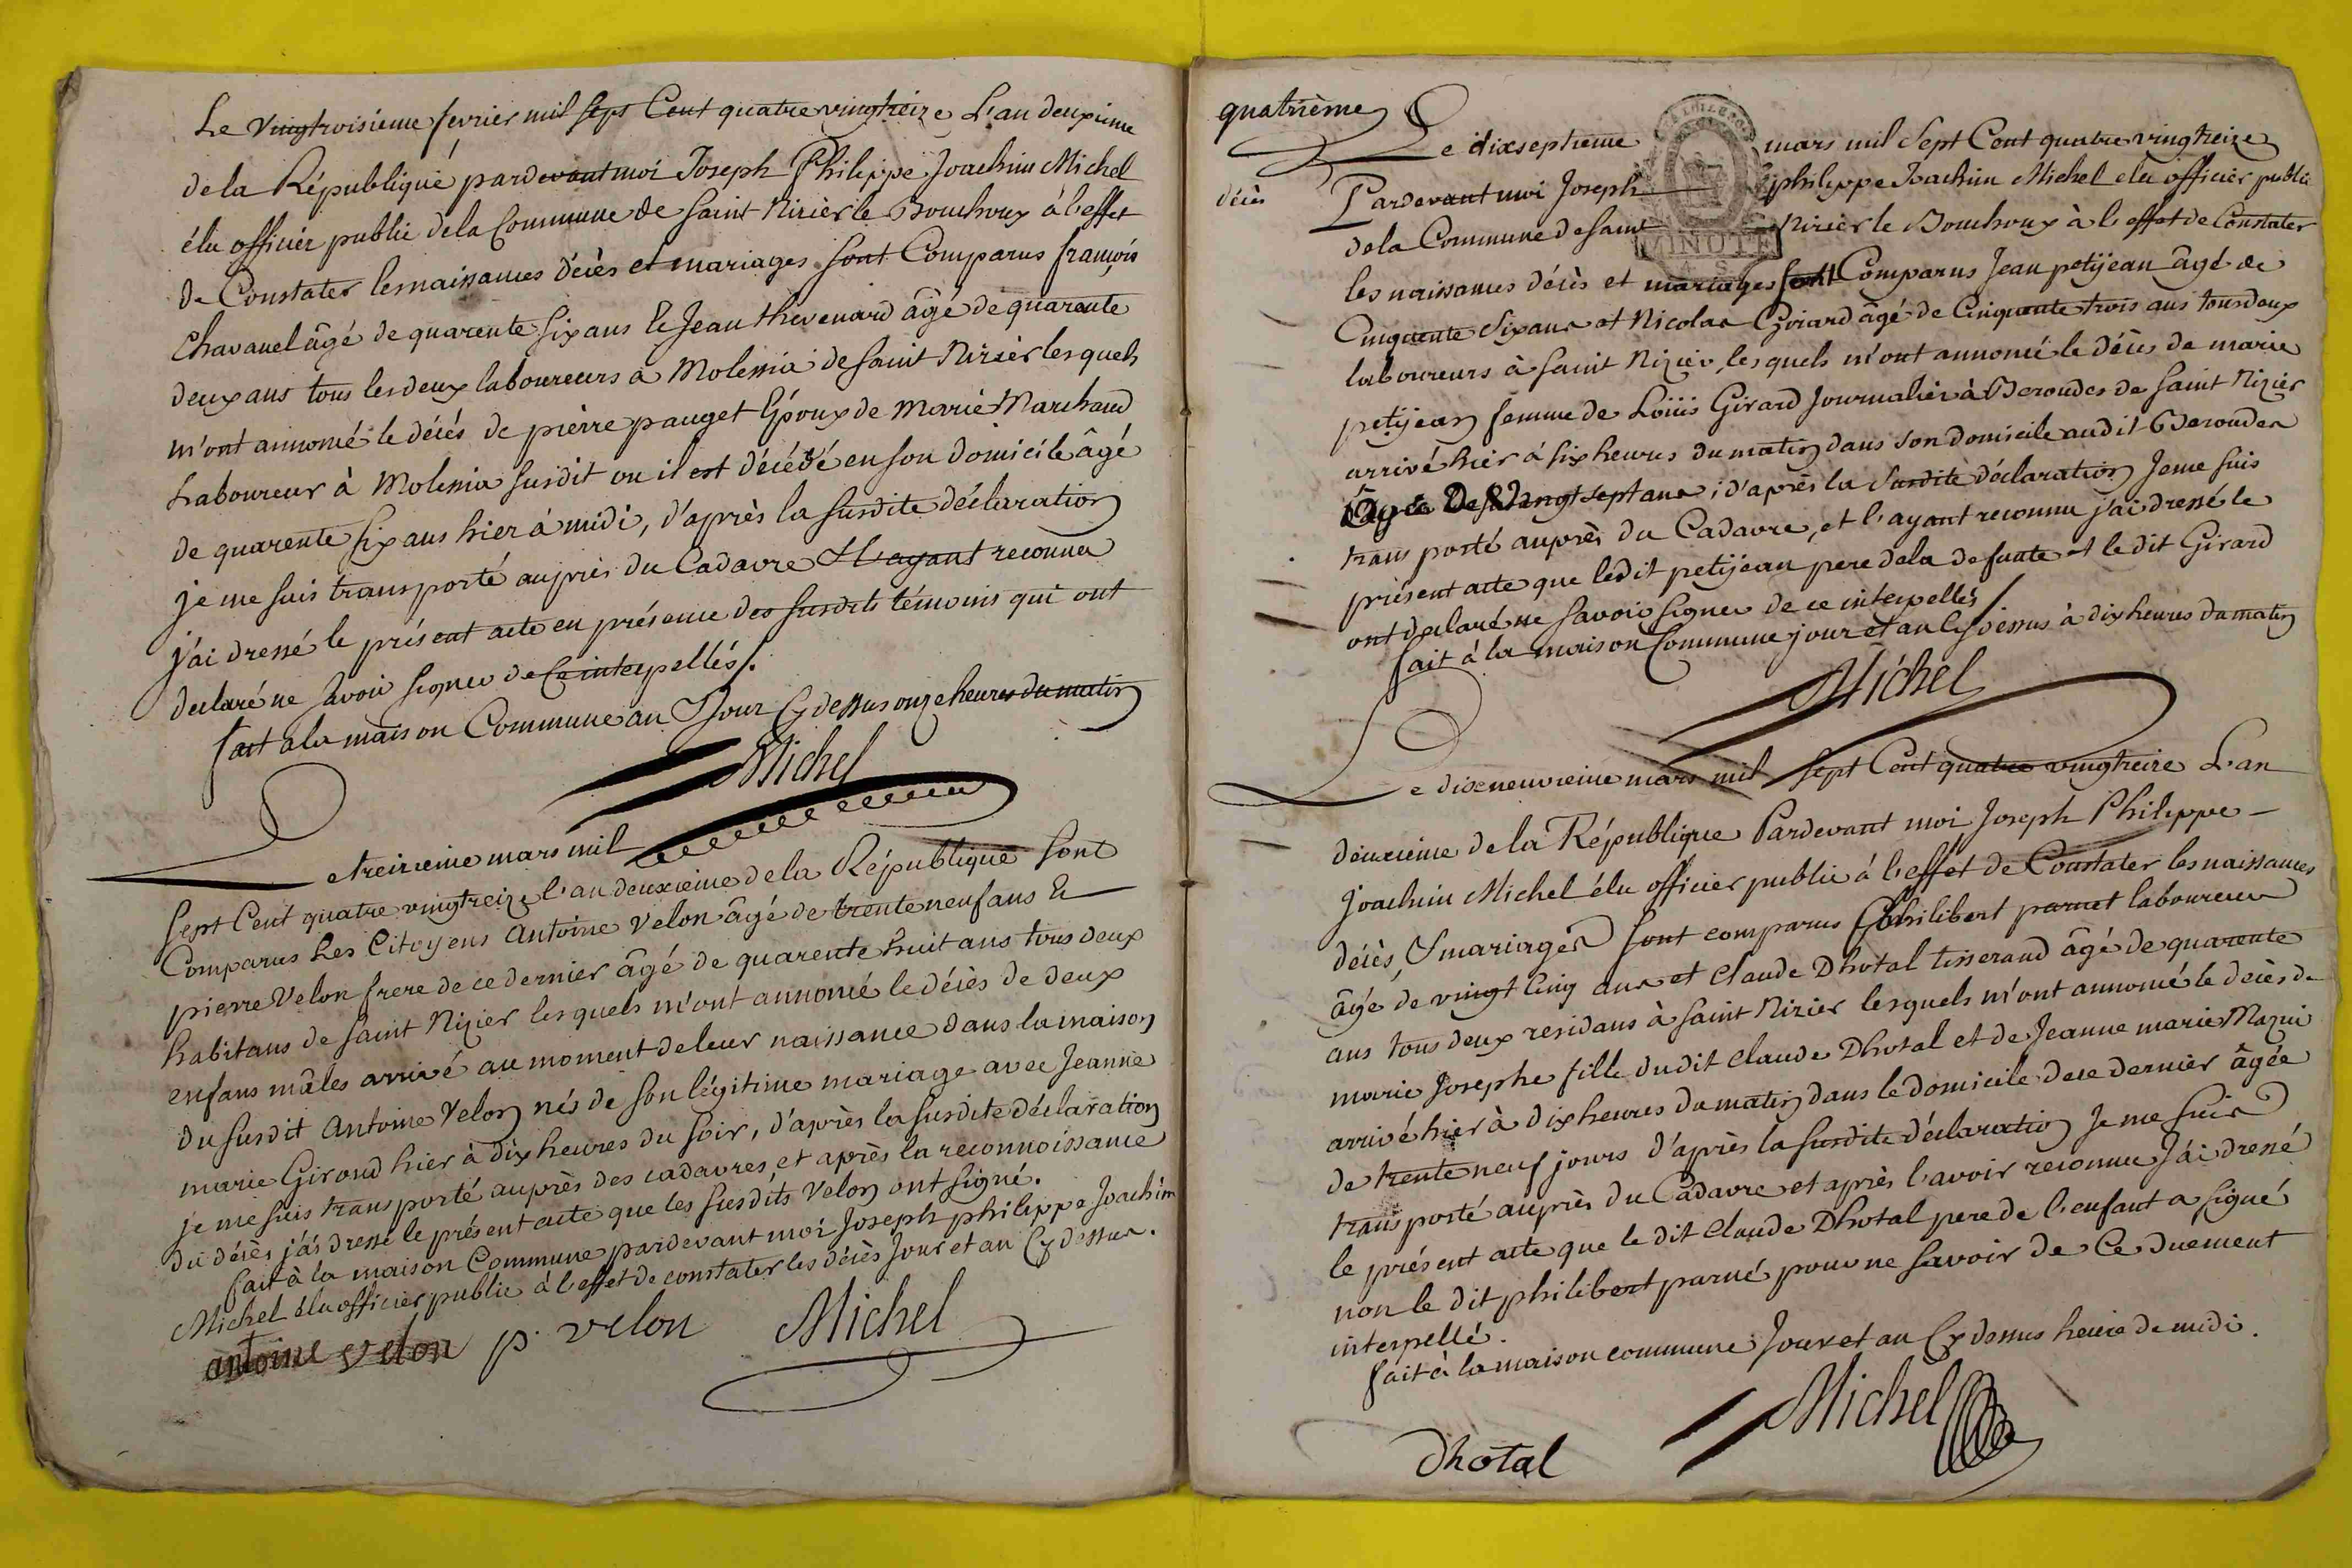 Le vingtroisieme fevrier mil sept Cent quatrevingtreize L'an deuxieme
de la République pardevant moi Joseph Philippe Joachim Michel
élu officier public de la Commune de Saint Nizier le Bouchoux à l'effet
de Constater les naissances décès et mariages sont Comparus françois
Chavanel âgé de quarente six ans & Jean thevenard âgé de quarente
deux ans tous les deux laboureurs à Molissia de Saint Nizier les quels
m'ont annoncé le décés de pierre pauget Epoux de Marie Marchand
Laboureur à Molissia susdit ou il est décédé en son domicile âgé
de quarente six ans hier à midi, d'après la susdite déclaration
je me suis transporté auprès du Cadavre & l'ayant reconnu
j'ai dressé le présent acte en présence des susdits témoins qui ont
declaré ne savoir signer de Ce interpellés/.
fait a la maison Commune au Jour Cy dessus onze heures du matin
Michel
Le treizieme mars mil
Sept Cent quatre vingtreize l'an deuxieme de la République sont
Comparus Les Citoyens Antoine Velon âgé de trente neuf ans &
pierre Velon frere de ce dernier âgé de quarente huit ans tous deux
habitans de Saint Nizier les quels m'ont annoncé le décès de deux
enfans mâles arrivé au moment de leur naissance dans la maison
du susdit Antoine Velon nés de son légitime mariage avec Jeanne
marie Girond hier à dix heures du soir, d'après la susdite déclaration
je me suis transporté auprès des cadavres, et après la reconnoissance
du décès j'ai dressé le présent acte que les susdits Velon ont signé.
fait à la maison Commune pardevant moi Joseph philippe Joachim
Michel élu officier public à l'effet de constater les décès Jour et an Cy dessus.
antoine velon p. velon Michel
quatrième
décès
Le dixseptieme mars mil Sept Cent quatre vingtreize
Pardevant moi Joseph philippe Joachim Michel élu officier public
de la Commune de Saint Nizier le Bouchoux à l'effet de Constater
MINUTE
les naissances décès et mariages sont Comparus Jean petijean âgé de
Cinquente six ans et Nicolas Goiard âgé de Cinquente trois ans tous deux
laboureurs à Saint Nizier, les quels m'ont annoncé le décès de marie
petijean femme de Loüis Girard Journalier à Beroudes de Saint Nizier
arrivé hier à six heures du matin dans son domicile audit Beroudes
âgée de vingt sept ans; d'après la susdite déclaration Je me suis
transporté auprès du Cadavre, et l'ayant reconnu j'ai dressé le
présent acte que ledit petijean pere de la defunte et le dit Girard
ont declaré ne savoir signer de ce interpellés/
fait à la maison Commune jour et an Cy dessus à dix heures du matin
Michel
Le dixneuvieme mars mil sept Cent quatre vingtreize L'an
deuxieme de la République Pardevant moi Joseph Philippe
Joachim Michel élu officier public à l'effet de Constater les naissances
décès, & mariages sont comparus Philibert parnet laboureur
âgé de vingt Cinq ans et Claude Dhotal tisserand âgé de quarente
ans tous deux residans à Saint Nizier lesquels m'ont annoncé le décès de
marie Josephe fille dudit Claude Dhotal et de Jeanne marie Mazui
arrivé hier à dix heures du matin dans le domicile de ce dernier âgée
de trente neuf jours d'après la susdite déclaration Je me suis
transporté auprès du Cadavre et après l'avoir reconnu J'ai dressé
le présent acte que le dit Claude Dhotal pere de l'enfant a signé
non le dit philibert parné pour ne savoir de Ce duement
interpellé.
fait à la maison commune Jour et an Cy dessus heure de midi.
Michel
Dhotal